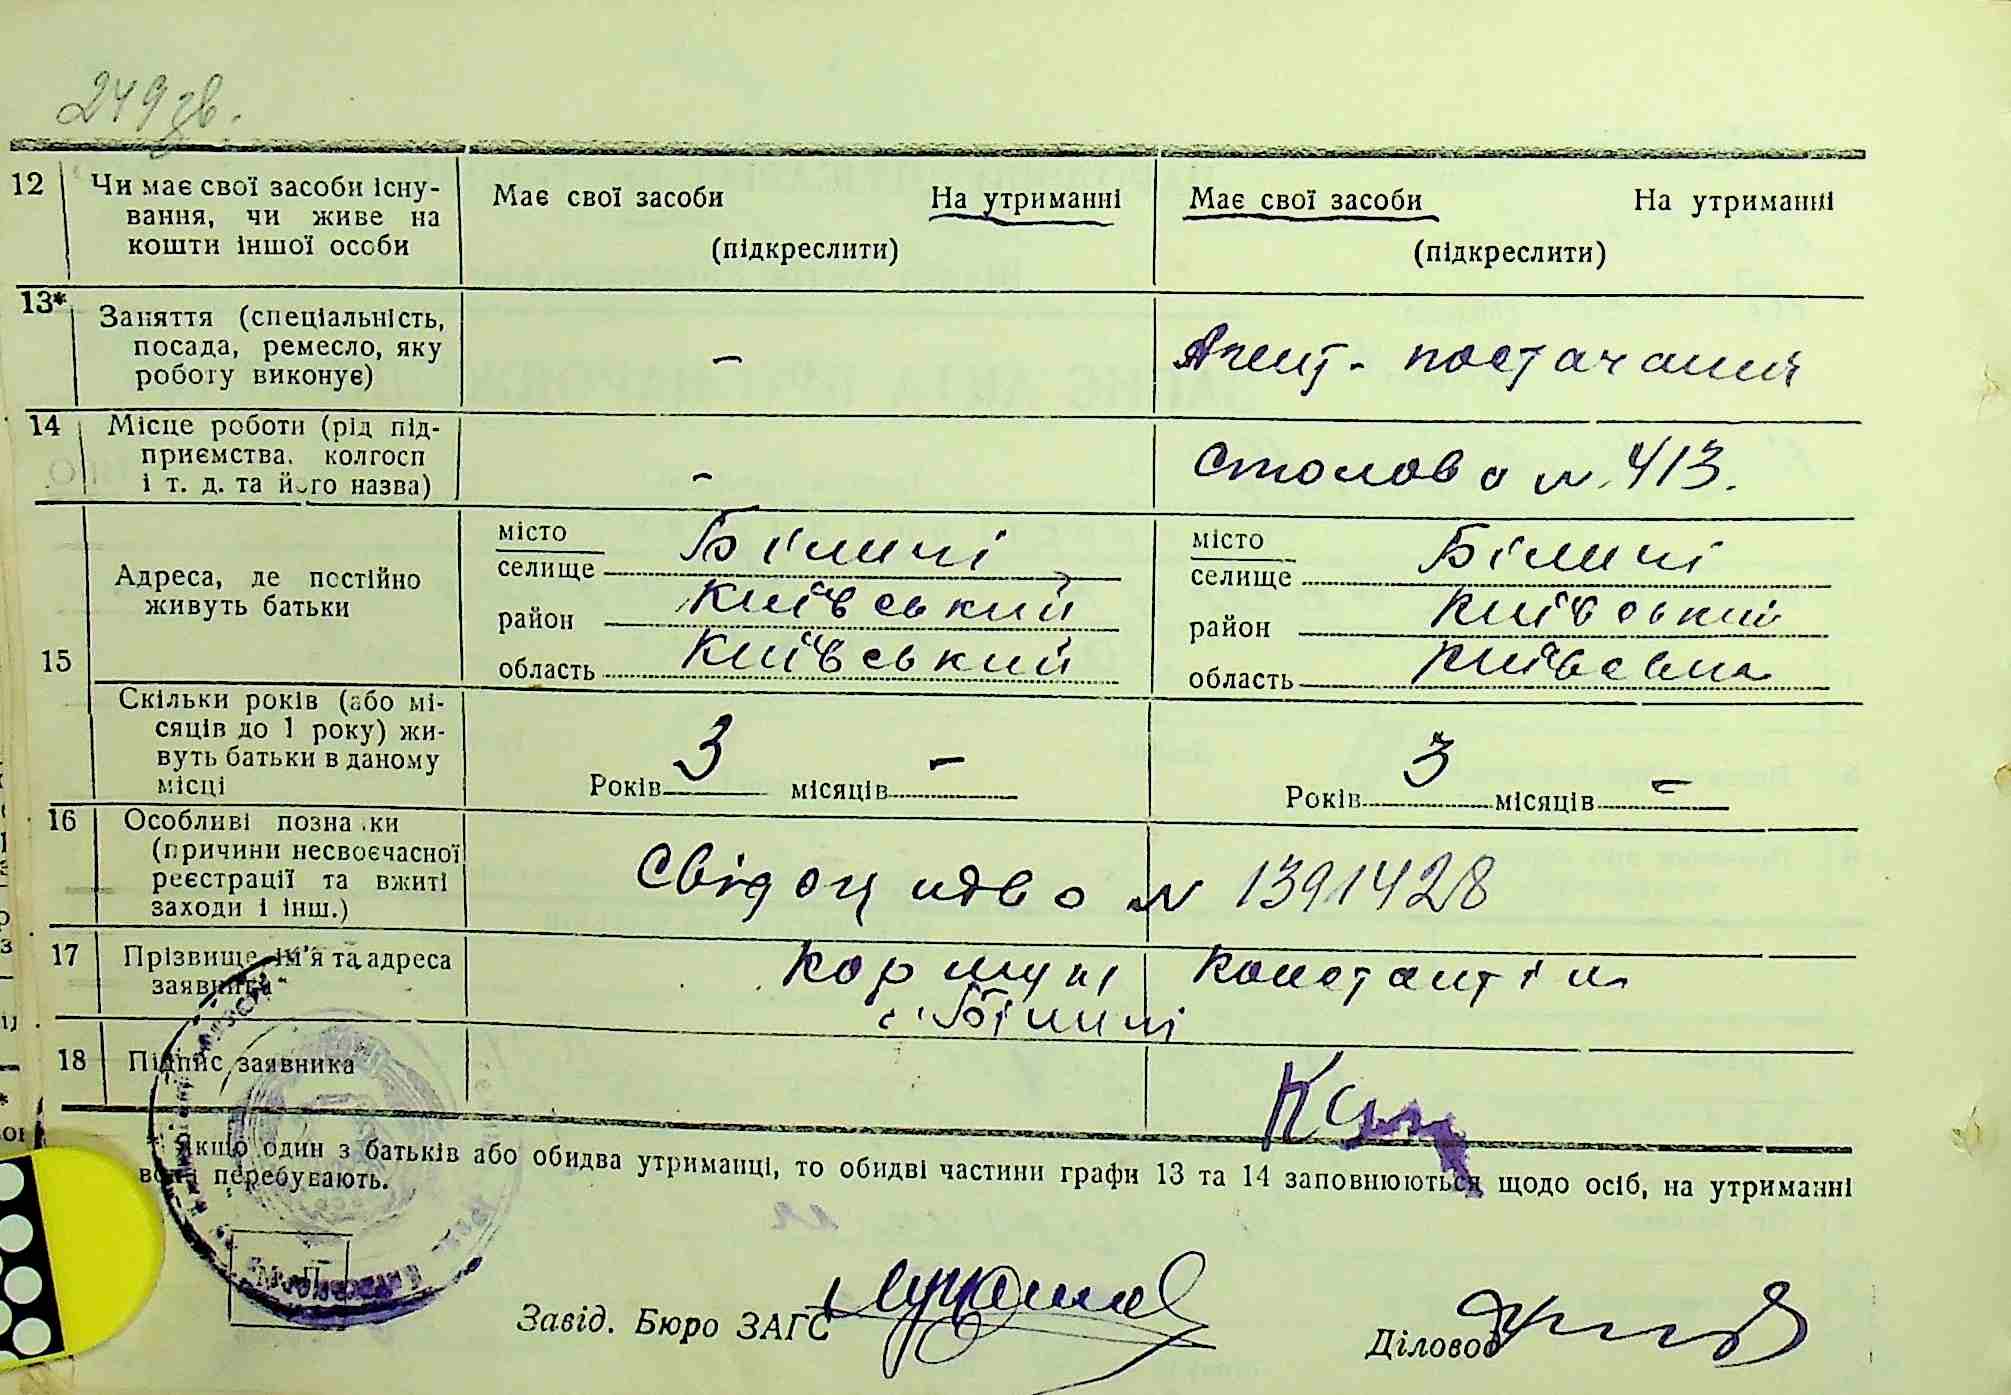 249 зв.
12 Чи має свої засоби існу-
вання, чи живе на
кошти іншої особи
Має свої засоби На утриманні
(підкреслити)
Має свої засоби На утриманні
(підкреслити)
13* Заняття (спеціальність,
посада, ремесло, яку
роботу виконує)
–
Агент - постачання
14 Місце роботи (рід під-
приємства, колгосп
і т. д. та його назва)
–
Столова N 413.
15 Адреса, де постійно
живуть батьки
місто
селище Біличі
район Київський
область Київський
місто
селище Біличі
район Київський
область Київська
Скільки років (або мі-
сяців до 1 року) жи-
вуть батьки в даному
місці
Років 3 місяців –
Років 3 місяців –
16 Особливі познаки
(причини несвоєчасної
реєстрації та вжиті
заходи і інш.)
Свідоцтво N 1391428
17 Прізвище, ім'я та адреса
заявника
Константін
с. Біличі
18 Підпис заявника
* Якщо один з батьків або обидва утриманці, то обидві частини графи 13 та 14 заповнюються щодо осіб, на утриманні
вони перебувають.
М. П.
Завід. Бюро ЗАГС
Діловод